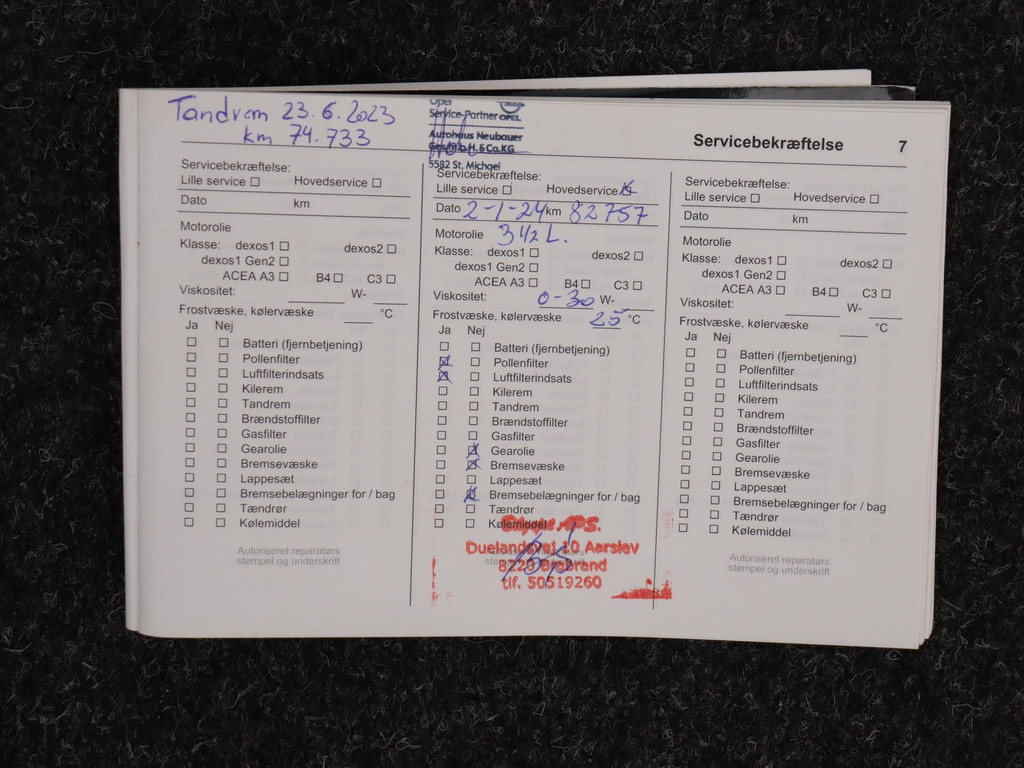 Tandrem 23.6.2023
km 74.733
Opel
Service-Partner OPEL
Autohaus Neubauer
Ges.m.b.H. & Co.KG
5582 St. Michael
Servicebekræftelse 7
Servicebekræftelse:
Lille service ☐ Hovedservice ☐
Dato km
Motorolie
Klasse: dexos1 ☐ dexos2 ☐
dexos1 Gen2 ☐
ACEA A3 ☐ B4 ☐ C3 ☐
Viskositet: W-
Frostvæske, kølervæske °C
Ja Nej
☐ ☐ Batteri (fjernbetjening)
☐ ☐ Pollenfilter
☐ ☐ Luftfilterindsats
☐ ☐ Kilerem
☐ ☐ Tandrem
☐ ☐ Brændstoffilter
☐ ☐ Gasfilter
☐ ☐ Gearolie
☐ ☐ Bremsevæske
☐ ☐ Lappesæt
☐ ☐ Bremsebelægninger for / bag
☐ ☐ Tændrør
☐ ☐ Kølemiddel
Autoriseret reparatørs
stempel og underskrift
Servicebekræftelse:
Lille service ☐ Hovedservice ☒
Dato 2-1-24 km 82757
Motorolie 3 1/2 L.
Klasse: dexos1 ☐ dexos2 ☐
dexos1 Gen2 ☐
ACEA A3 ☐ B4 ☐ C3 ☐
Viskositet: 0-30 W-
Frostvæske, kølervæske 25 °C
Ja Nej
☐ ☐ Batteri (fjernbetjening)
☒ ☐ Pollenfilter
☒ ☐ Luftfilterindsats
☐ ☐ Kilerem
☐ ☐ Tandrem
☐ ☐ Brændstoffilter
☐ ☐ Gasfilter
☐ ☒ Gearolie
☐ ☒ Bremsevæske
☐ ☐ Lappesæt
☐ ☒ Bremsebelægninger for / bag
☐ ☐ Tændrør
☐ ☐ Kølemiddel
APS.
Duelandsvej 10 Aarslev
8220 Brabrand
tlf. 50519260
Servicebekræftelse:
Lille service ☐ Hovedservice ☐
Dato km
Motorolie
Klasse: dexos1 ☐ dexos2 ☐
dexos1 Gen2 ☐
ACEA A3 ☐ B4 ☐ C3 ☐
Viskositet: W-
Frostvæske, kølervæske °C
Ja Nej
☐ ☐ Batteri (fjernbetjening)
☐ ☐ Pollenfilter
☐ ☐ Luftfilterindsats
☐ ☐ Kilerem
☐ ☐ Tandrem
☐ ☐ Brændstoffilter
☐ ☐ Gasfilter
☐ ☐ Gearolie
☐ ☐ Bremsevæske
☐ ☐ Lappesæt
☐ ☐ Bremsebelægninger for / bag
☐ ☐ Tændrør
☐ ☐ Kølemiddel
Autoriseret reparatørs
stempel og underskrift